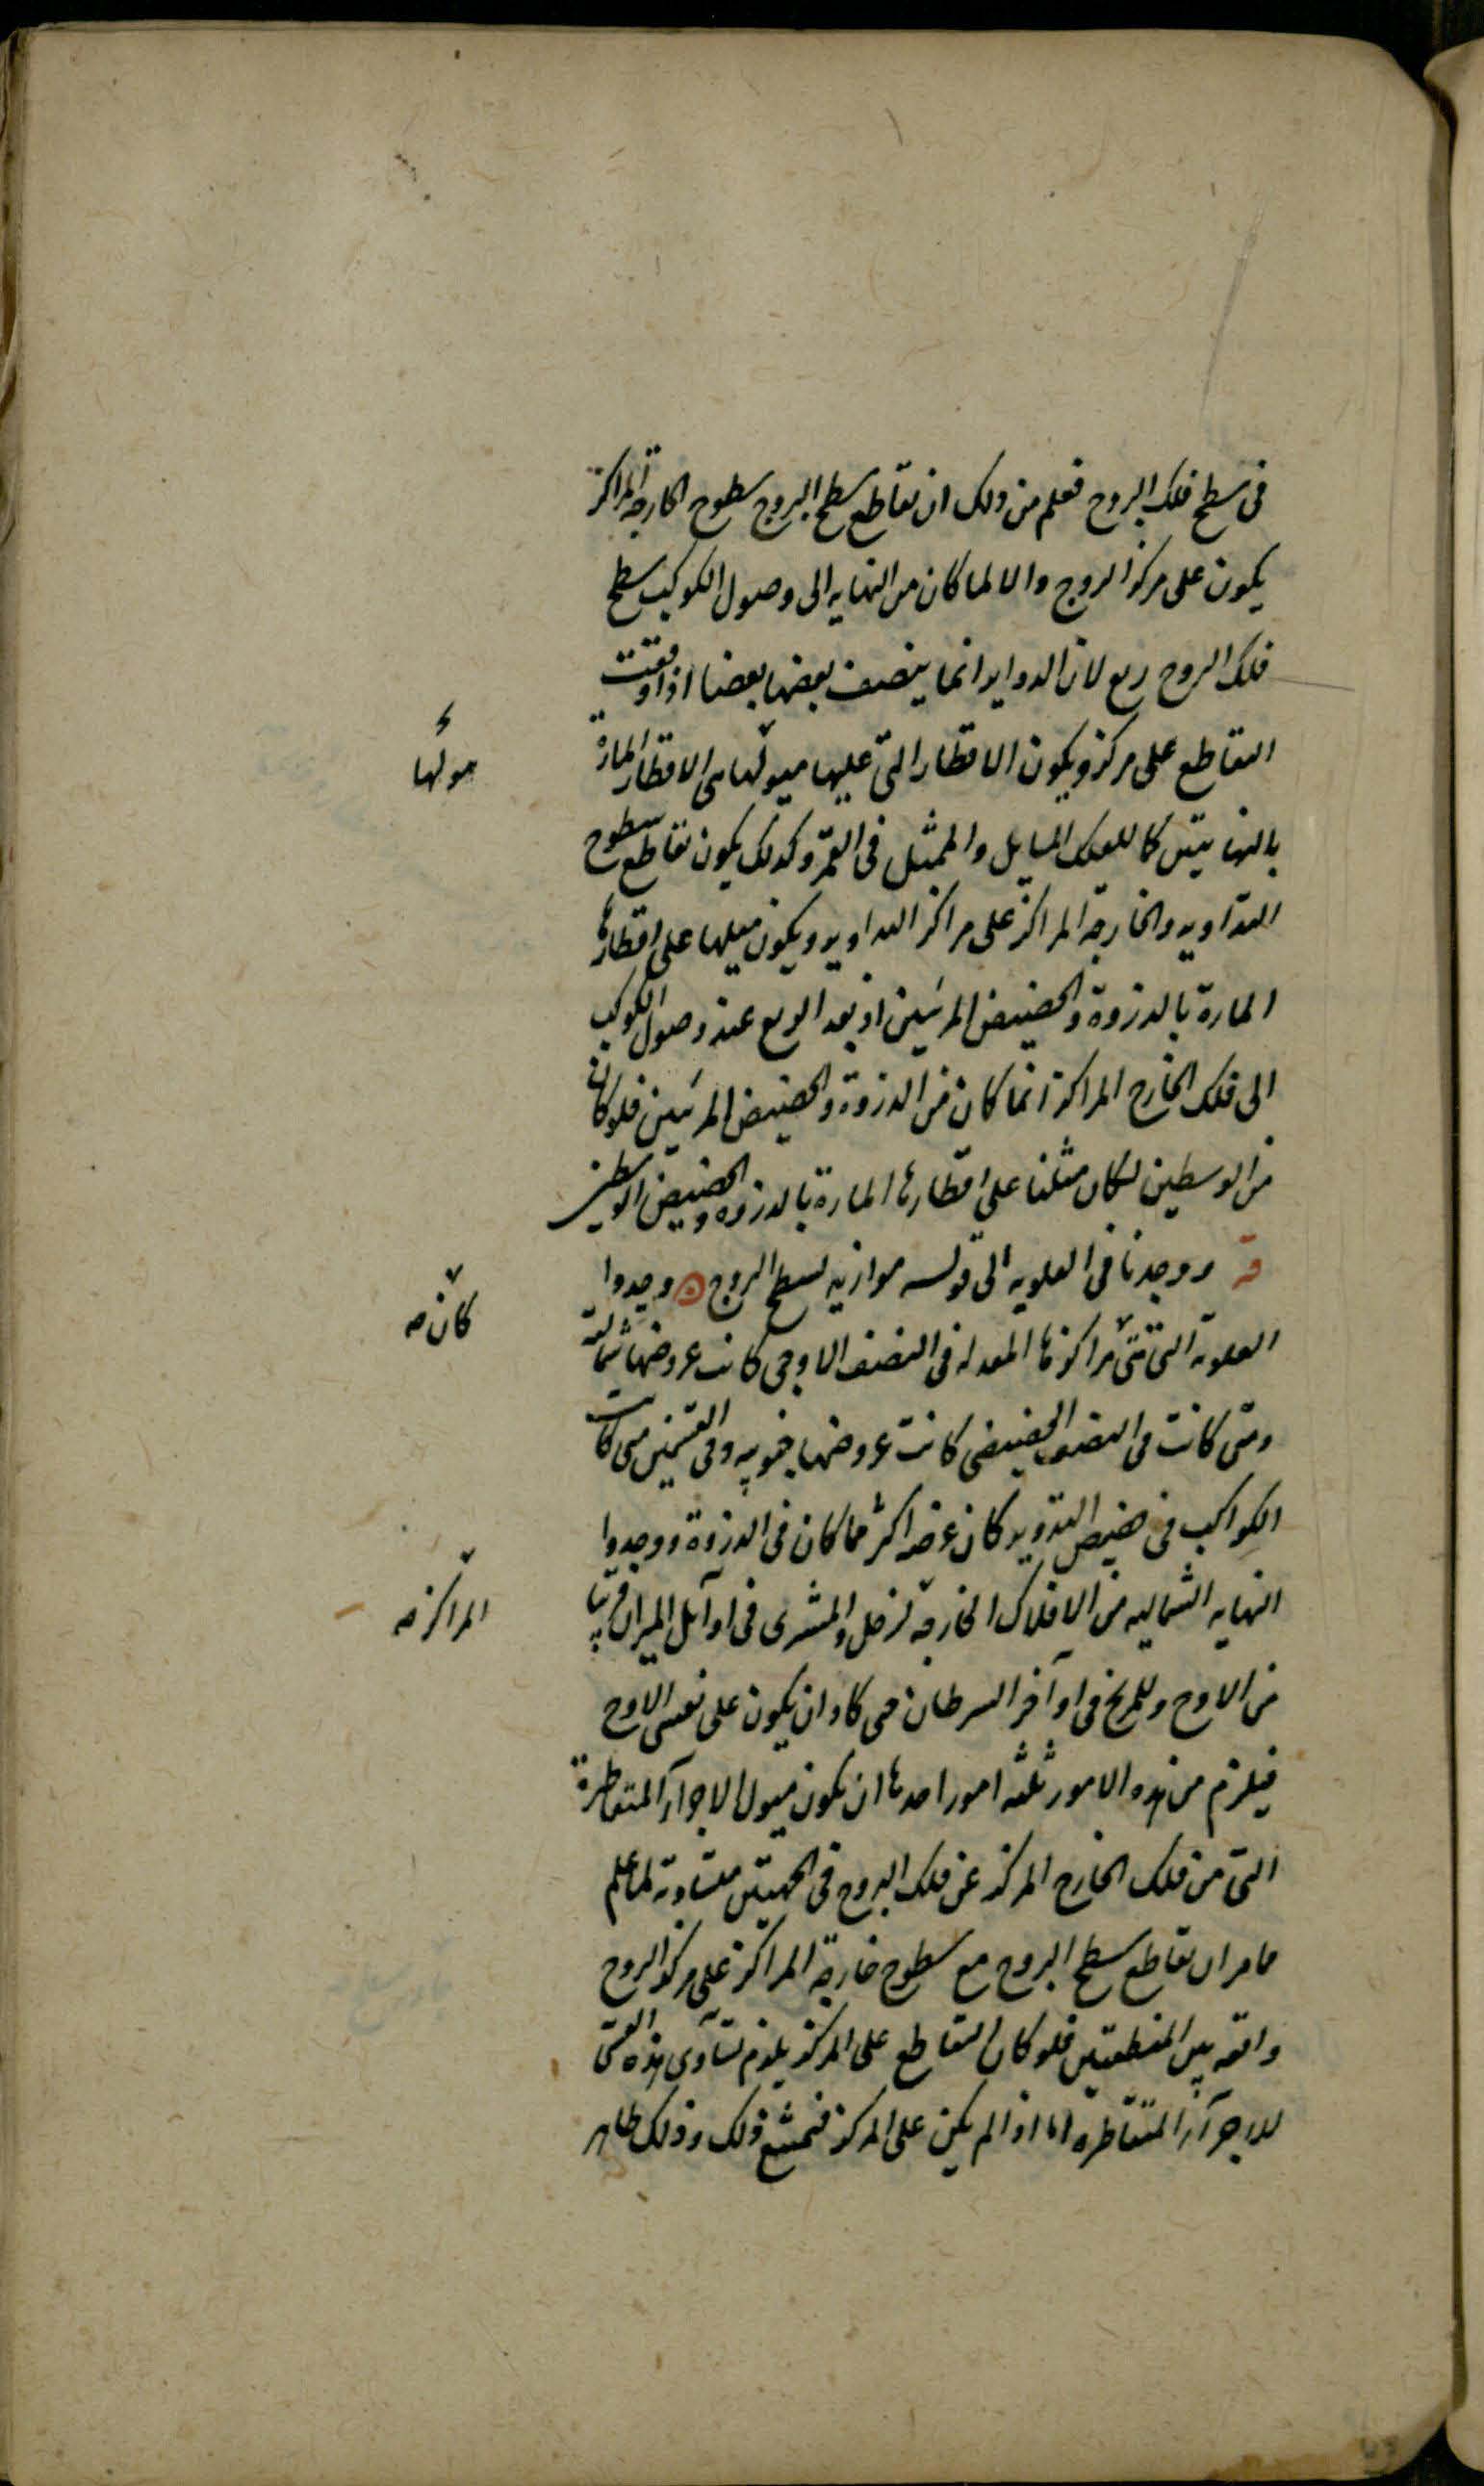 فى سطح فلك البروج فعلم من ذلك ان تقاطع سطح البروج سطوح الخارجة المراكز
يكون على مركز البروج والا لما كان من النهاية الى وصول الكوكب سطح
فلك البروج ربع لان الدواير انما ينصف بعضها بعضا اذا وقعت
التقاطع على مركز ويكون الاقطار التى عليها ميولها هى الاقطار المارة
بالنهايتين كما للفلك المايل والممثل فى القمر وكذلك يكون تقاطع سطوح
التداوير والخارجة المراكز على مراكز التداوير ويكون ميلها على اقطارها
المارة بالذروة والحضيض المرئيين اذ بعد الربع عند وصول الكوكب
الى فلك الخارج المراكز انما كان من الذروة والحضيض المرئيين فلو كان
من الوسطين لكان مثلنا على اقطارها المارة بالذروة والحضيض الوسطين
قه ووجدنا فى العلويه الى قوله موازيه لسطح البروج ۞ وجدوا
العلوية التى متى مراكزها المعدله فى النصف الاوجى كانت عروضها شمالية
ومتى كانت فى النصف الحضيضى كانت عروضها جنوبيه وفى القسمين متى كانت
الكواكب فى حضيض التدوير كان عرضه اكثر مما كان فى الذروة ووجدوا
النهايه الشماليه من الافلاك الخارجة لزحل والمشترى فى اوائل الميزان قريبا
من الاوج وللمريخ فى اواخر السرطان حتى كاد ان يكون على نفس الاوج
فيلزم من هذه الامور ثلثه امور احدها ان يكون ميول الاجزآء المتقاطرة
التى من فلك الخارج المركز عن فلك البروج فى الجهتين متساوية لما علم
مما مر ان تقاطع سطح البروج مع سطوح خارجة المراكز على مركز البروج
واقعه بين المنطقتين فلو كان التقاطع على المركز يلزم تساوى هذه القسى
للاجزآء المتقاطره اما اذا لم يكن على المركز فيمتنع ذلك وذلك ظاهر
ميولها
كان صه
المراكز صه